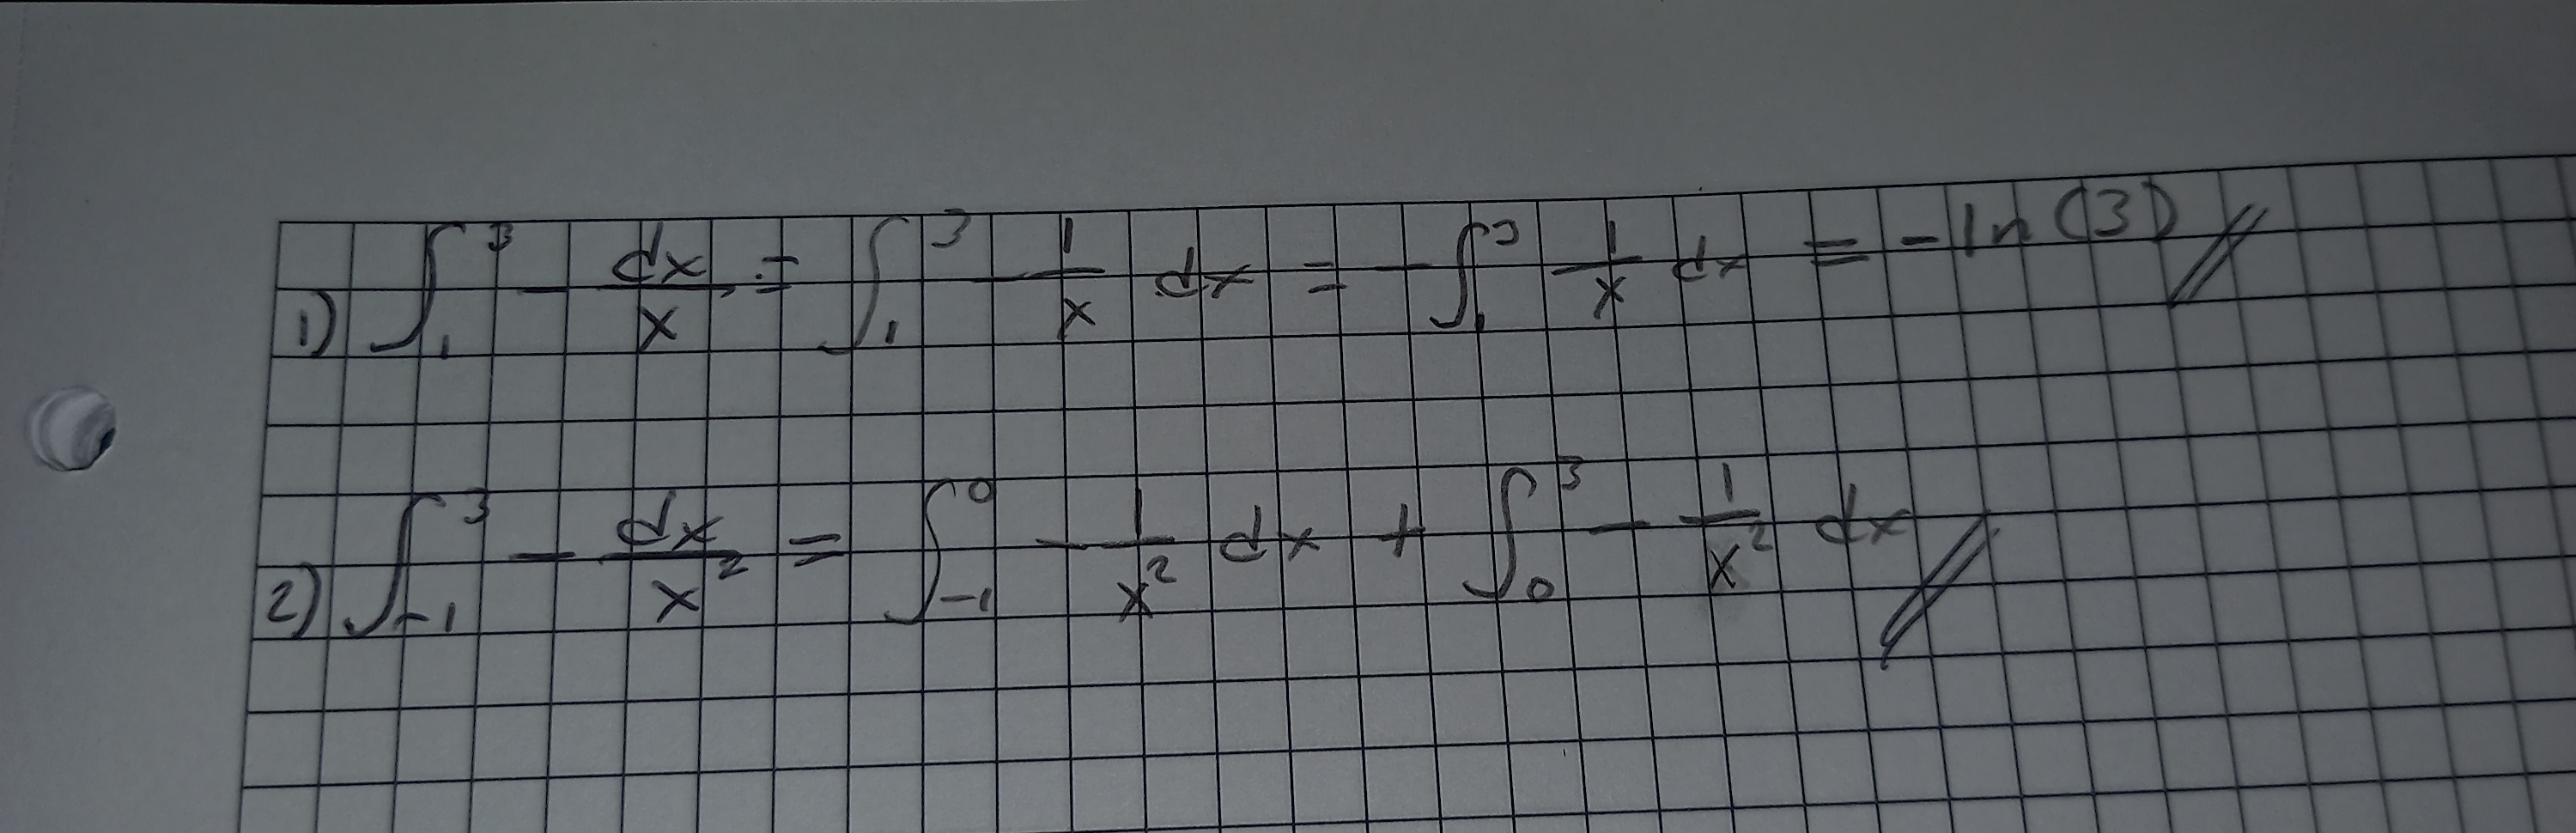 1) ∫₁³ - dx/x = ∫₁³ - 1/x dx = - ∫₁³ 1/x dx = - ln(3) //
2) ∫₋₁³ - dx/x² = ∫₋₁⁰ - 1/x² dx + ∫₀³ - 1/x² dx //